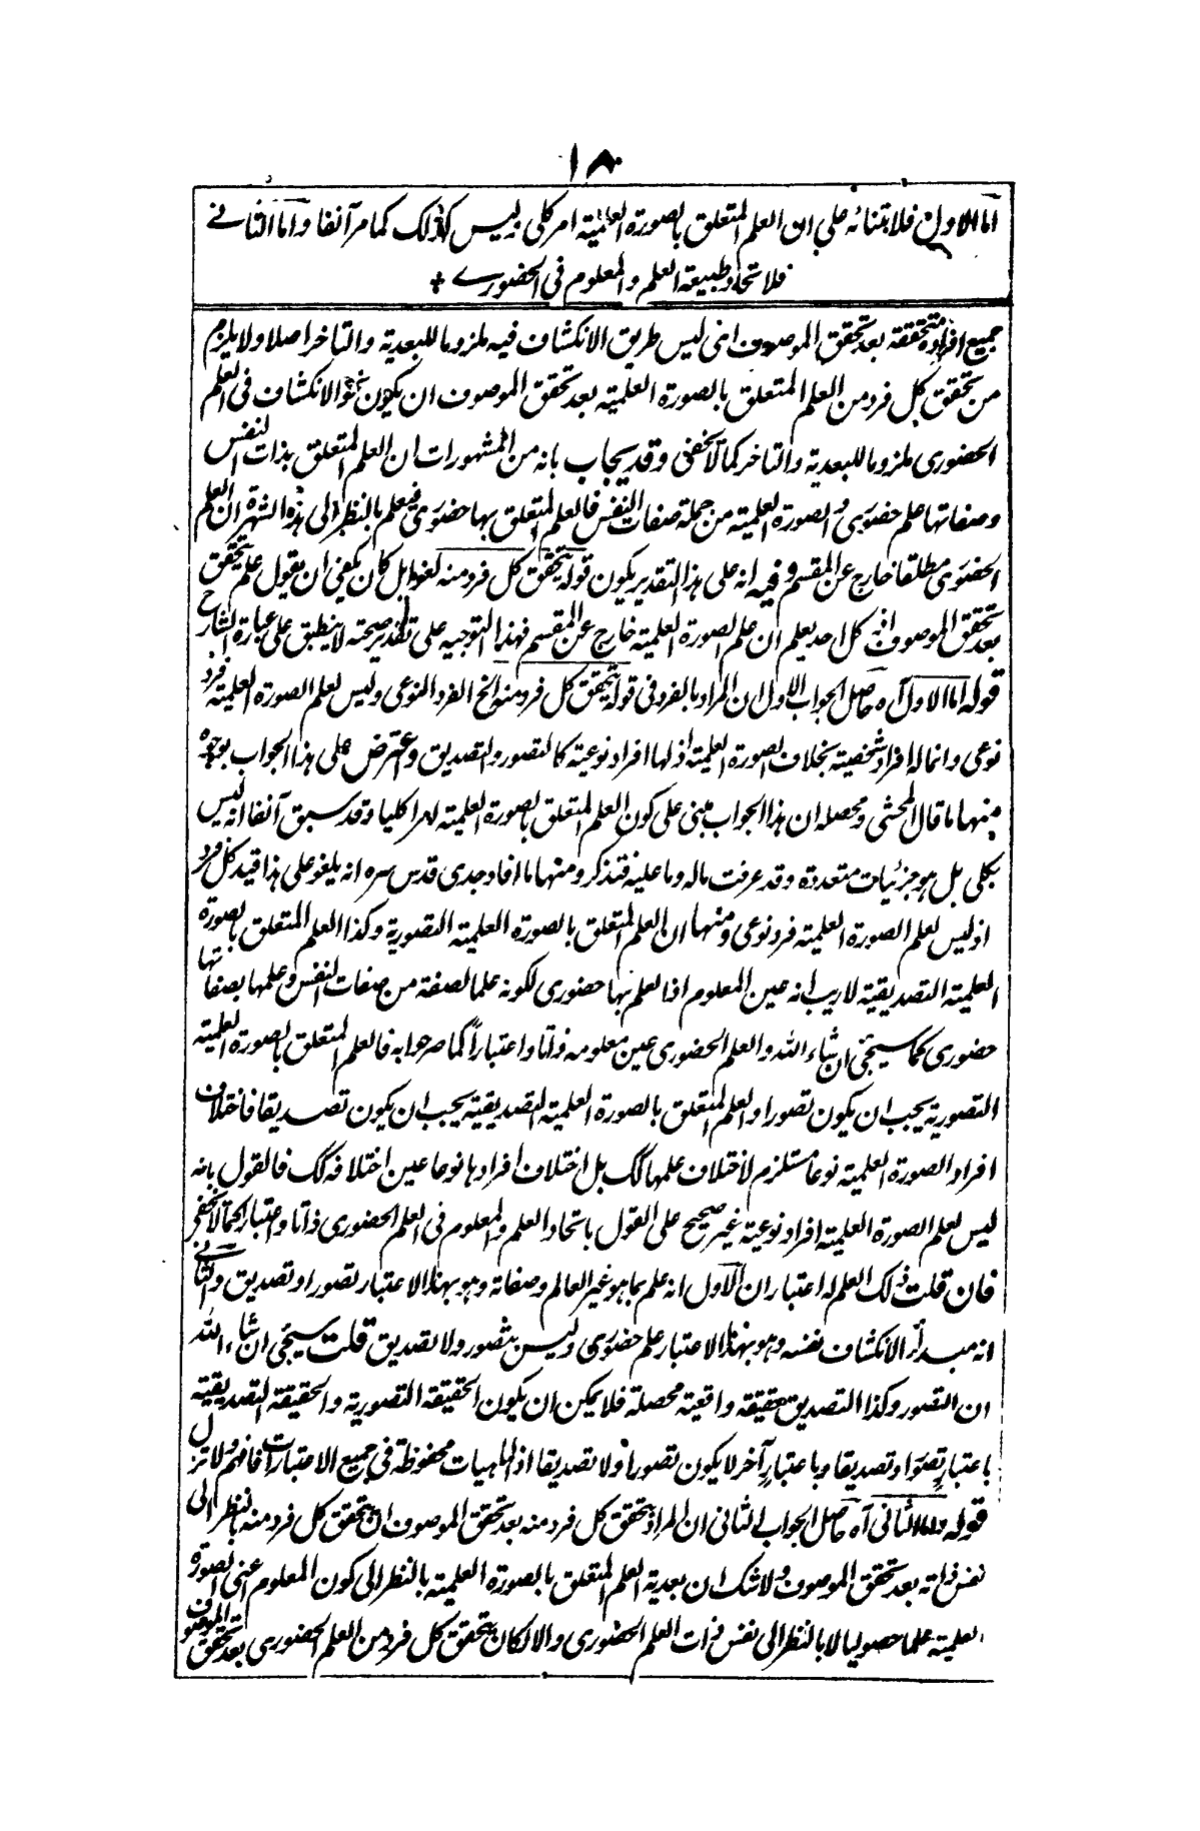 ١٨
اما الاول فلابتنائه على ان العلم المتعلق بالصورة العلمية امر كلى وليس كذلك كما مر آنفا واما الثانے
فلاتحاد طبيعة العلم والمعلوم فى الحضورے +
جميع افراده متحققة بعد تحقق الموصوف اذ ليس طريق الانكشاف فيه ملزوما للبعدية والتاخر اصلا ولا يلزم
من تحقق كل فرد من العلم المتعلق بالصورة العلمية بعد تحقق الموصوف ان يكون نحو الانكشاف فى العلم
الحضورى ملزوما للبعدية والتاخر كما لا يخفى وقد يجاب بانه من المشهورات ان العلم المتعلق بذات النفس
وصفاتها علم حضورى والصورة العلمية من جملة صفات النفس فالعلم المتعلق بها حضورى فيعلم بالنظر الى هذه الشهرة ان العلم
الحضورى مطلقا خارج عن المقسم وفيه انه على هذا التقدير يكون قوله يتحقق كل فرد منه لغوا بل كان يكفى ان يقول علم يتحقق
بعد تحقق الموصوف اذ كل احد يعلم ان علم الصورة العلمية خارج عن المقسم فهذا التوجيه على تقدير صحته لا ينطبق على عبارة الشارح
قوله اما الاول آه حاصل الجواب الاول ان المراد بالفرد فى قوله يتحقق كل فرد منه الخ الفرد النوعى وليس لعلم الصورة العلمية فرد
نوعى وانما له افراد شخصية بخلاف الصورة العلمية اذ لها افراد نوعية كالتصور والتصديق واعترض على هذا الجواب بوجوه
منها ما قال المحشى ومحصله ان هذا الجواب مبنى على كون العلم المتعلق بالصورة العلمية امرا كليا وقد سبق آنفا انه ليس
بكلى بل هو جزئيات متعددة وقد عرفت ماله وما عليه فتذكر ومنها ما افاد جدى قدس سره انه يلغو على هذا قيد كل فرد
اذ ليس لعلم الصورة العلمية فرد نوعى ومنها ان العلم المتعلق بالصورة العلمية التصورية وكذا العلم المتعلق بالصورة
العلمية التصديقية لا ريب انه عين المعلوم اذ العلم بها حضورى لكونه علما لصفة من صفات النفس وعلمها بصفاتها
حضورى كما سيجئ ان شاء الله والعلم الحضورى عين معلومه ذاتا واعتباراً كما صرحوا به فالعلم المتعلق بالصورة العلمية
التصورية يجب ان يكون تصورا والعلم المتعلق بالصورة العلمية التصديقية يجب ان يكون تصديقا فاختلاف
افراد الصورة العلمية نوعا مستلزم لاختلاف علمها كك بل اختلاف افرادها نوعا عين اختلافه كك فالقول بانه
ليس لعلم الصورة العلمية افراد نوعية غير صحيح على القول باتحاد العلم والمعلوم فى العلم الحضورى ذاتا واعتبارا كما لا يخفى
فان قلت ذلك العلم له اعتباران الاول انه علم بما هو غير العالم وصفاته وهو بهذا الاعتبار تصور او تصديق والثانے
انه مبدأ لانكشاف نفسه وهو بهذا الاعتبار علم حضورى وليس بتصور ولا تصديق قلت سيجئ ان شاء الله
ان التصور وكذا التصديق حقيقة واقعية محصلة فلا يمكن ان يكون الحقيقة التصورية والحقيقة التصديقية
باعتبار تصورا وتصديقا وباعتبار آخر لا يكون تصورا ولا تصديقا اذ الماهيات محفوظة فى جميع الاعتبارات فافهم ولا تزل
قوله واما الثانى آه حاصل الجواب الثانى ان المراد بتحقق كل فرد منه بعد تحقق الموصوف ان يتحقق كل فرد منه بالنظر الى
نفس ذاته بعد تحقق الموصوف ولا شك ان بعدية العلم المتعلق بالصورة العلمية بالنظر الى كون المعلوم اعنى الصورة
العلمية علما حصوليا لا بالنظر الى نفس ذات العلم الحضورى والا لكان يتحقق كل فرد من العلم الحضورى بعد تحقق الموصوف